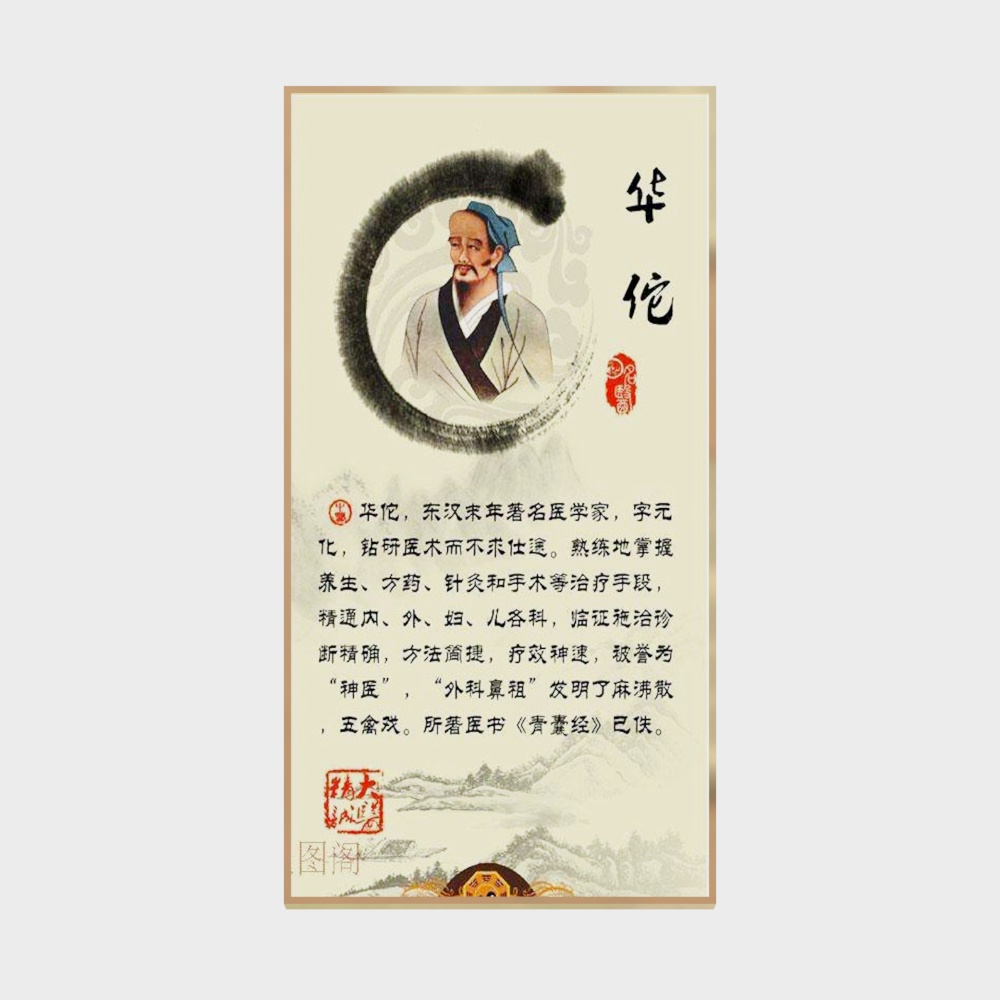 华佗
名医
华佗，东汉末年著名医学家，字元
化，钻研医术而不求仕途。熟练地掌握
养生、方药、针灸和手术等治疗手段，
精通内、外、妇、儿各科，临证施治诊
断精确，方法简捷，疗效神速，被誉为
“神医”，“外科鼻祖”发明了麻沸散
，五禽戏。所著医书《青囊经》已佚。
大醫
精誠
图阁